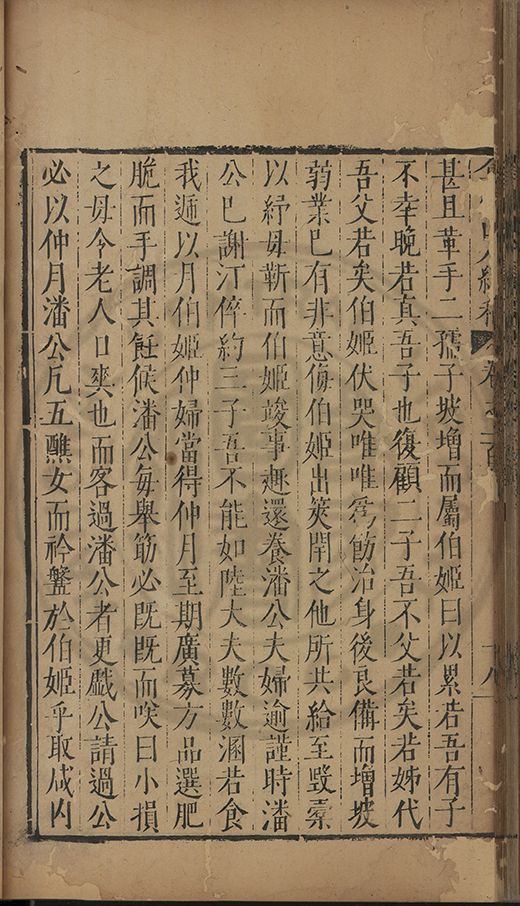 卷之一百
十八
甚且革手二孺子坡增而屬伯姬曰以累若吾有子
不幸晚若真吾子也復顧二子吾不父若矣若姊代
吾父若矣伯姬伏哭唯唯爲飭治身後良備而增坡
蒻業已有非意侮伯姬出筴閈之他所共給至毀橐
以紓毋靳而伯姬竣事趣還養潘公夫婦逾謹時潘
公已謝汀倅約三子吾不能如陸大夫數數溷若食
我遞以月伯姬仲婦當得仲月至期廣募方品選肥
脆而手調其飪候潘公每舉筯必旣旣而唉曰小損
之毋令老人口爽也而客過潘公者更戲公請過公
必以仲月潘公凡五醮女而衿鞶於伯姬乎取咸內